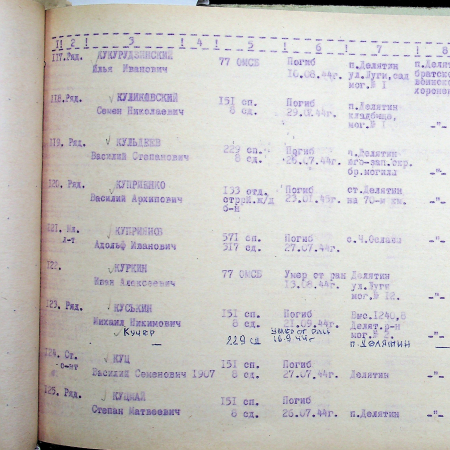 1! 2 ! 3 ! 4 ! 5 ! 6 ! 7 ! 8
117.Ряд. КУКУРУДЗИНСКИЙ 77 ОМСБ Погиб п.Делятин п.Деля
Илья Иванович 16.08.44г. ул.Луги,сад братско
мог.№ 1 воинско
хоронен
118.Ряд. КУЛИКОВСКИЙ 151 сп. Погиб п.Делятин
Семен Николаевич 8 сд. 29.07.44г. кладбище,
мог.№ -"-
119. Ряд. КУЛЬДЕЕВ 229 сп. Погиб п.Делятин
Василий Степанович 8 сд. 26.07.44г. юго-зап.окр.
бр.могила -"-
120. Ряд. КУПРИЕНКО 133 отд. Погиб ст.Делятин
Василий Архипович строй.ж/д 23.01.45г. на 70-м км. -"-
б-н
121. Мл. КУПРИЯНОВ 571 сп. Погиб
л-т Адольф Иванович 317 сд. 27.07.44г. -"-
122. КУРКИН 77 ОМСБ Умер от ран Делятин
Иван Алексеевич 13.08.44г. ул.Луги
мог.№ 12. -"-
123. Ряд. КУСЬКИН 151 сп. Погиб Выс.1240,8
Михаил Никимович 8 сд. 21.09.44г. Делят.р-н
мог.№ -"-
Кучер 229 сд умер от ран п. Делятин
16.9.44г
124. Ст. КУЦ 151 сп. Погиб
Василий Семенович 1907 8 сд. 27.07.44г. Делятин -"-
125. Ряд. КУЦМАЙ 151 сп. Погиб
Степан Матвеевич 8 сд. 26.07.44г. п.Делятин -"-